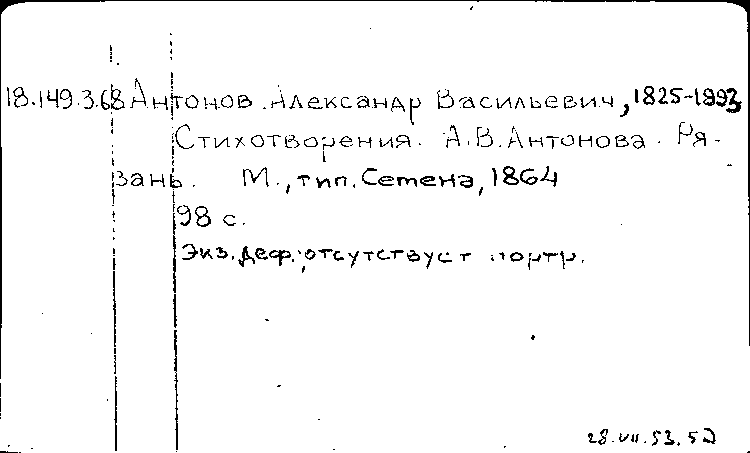 18.149.3.68 Антонов Александр Васильевич, 1825-1893
Стихотворения. А.В. Антонова. Ря-
зань. М., тип. Семена, 1864
98 с.
Экз. деф.; отсутствует портр.
28.VII.53.